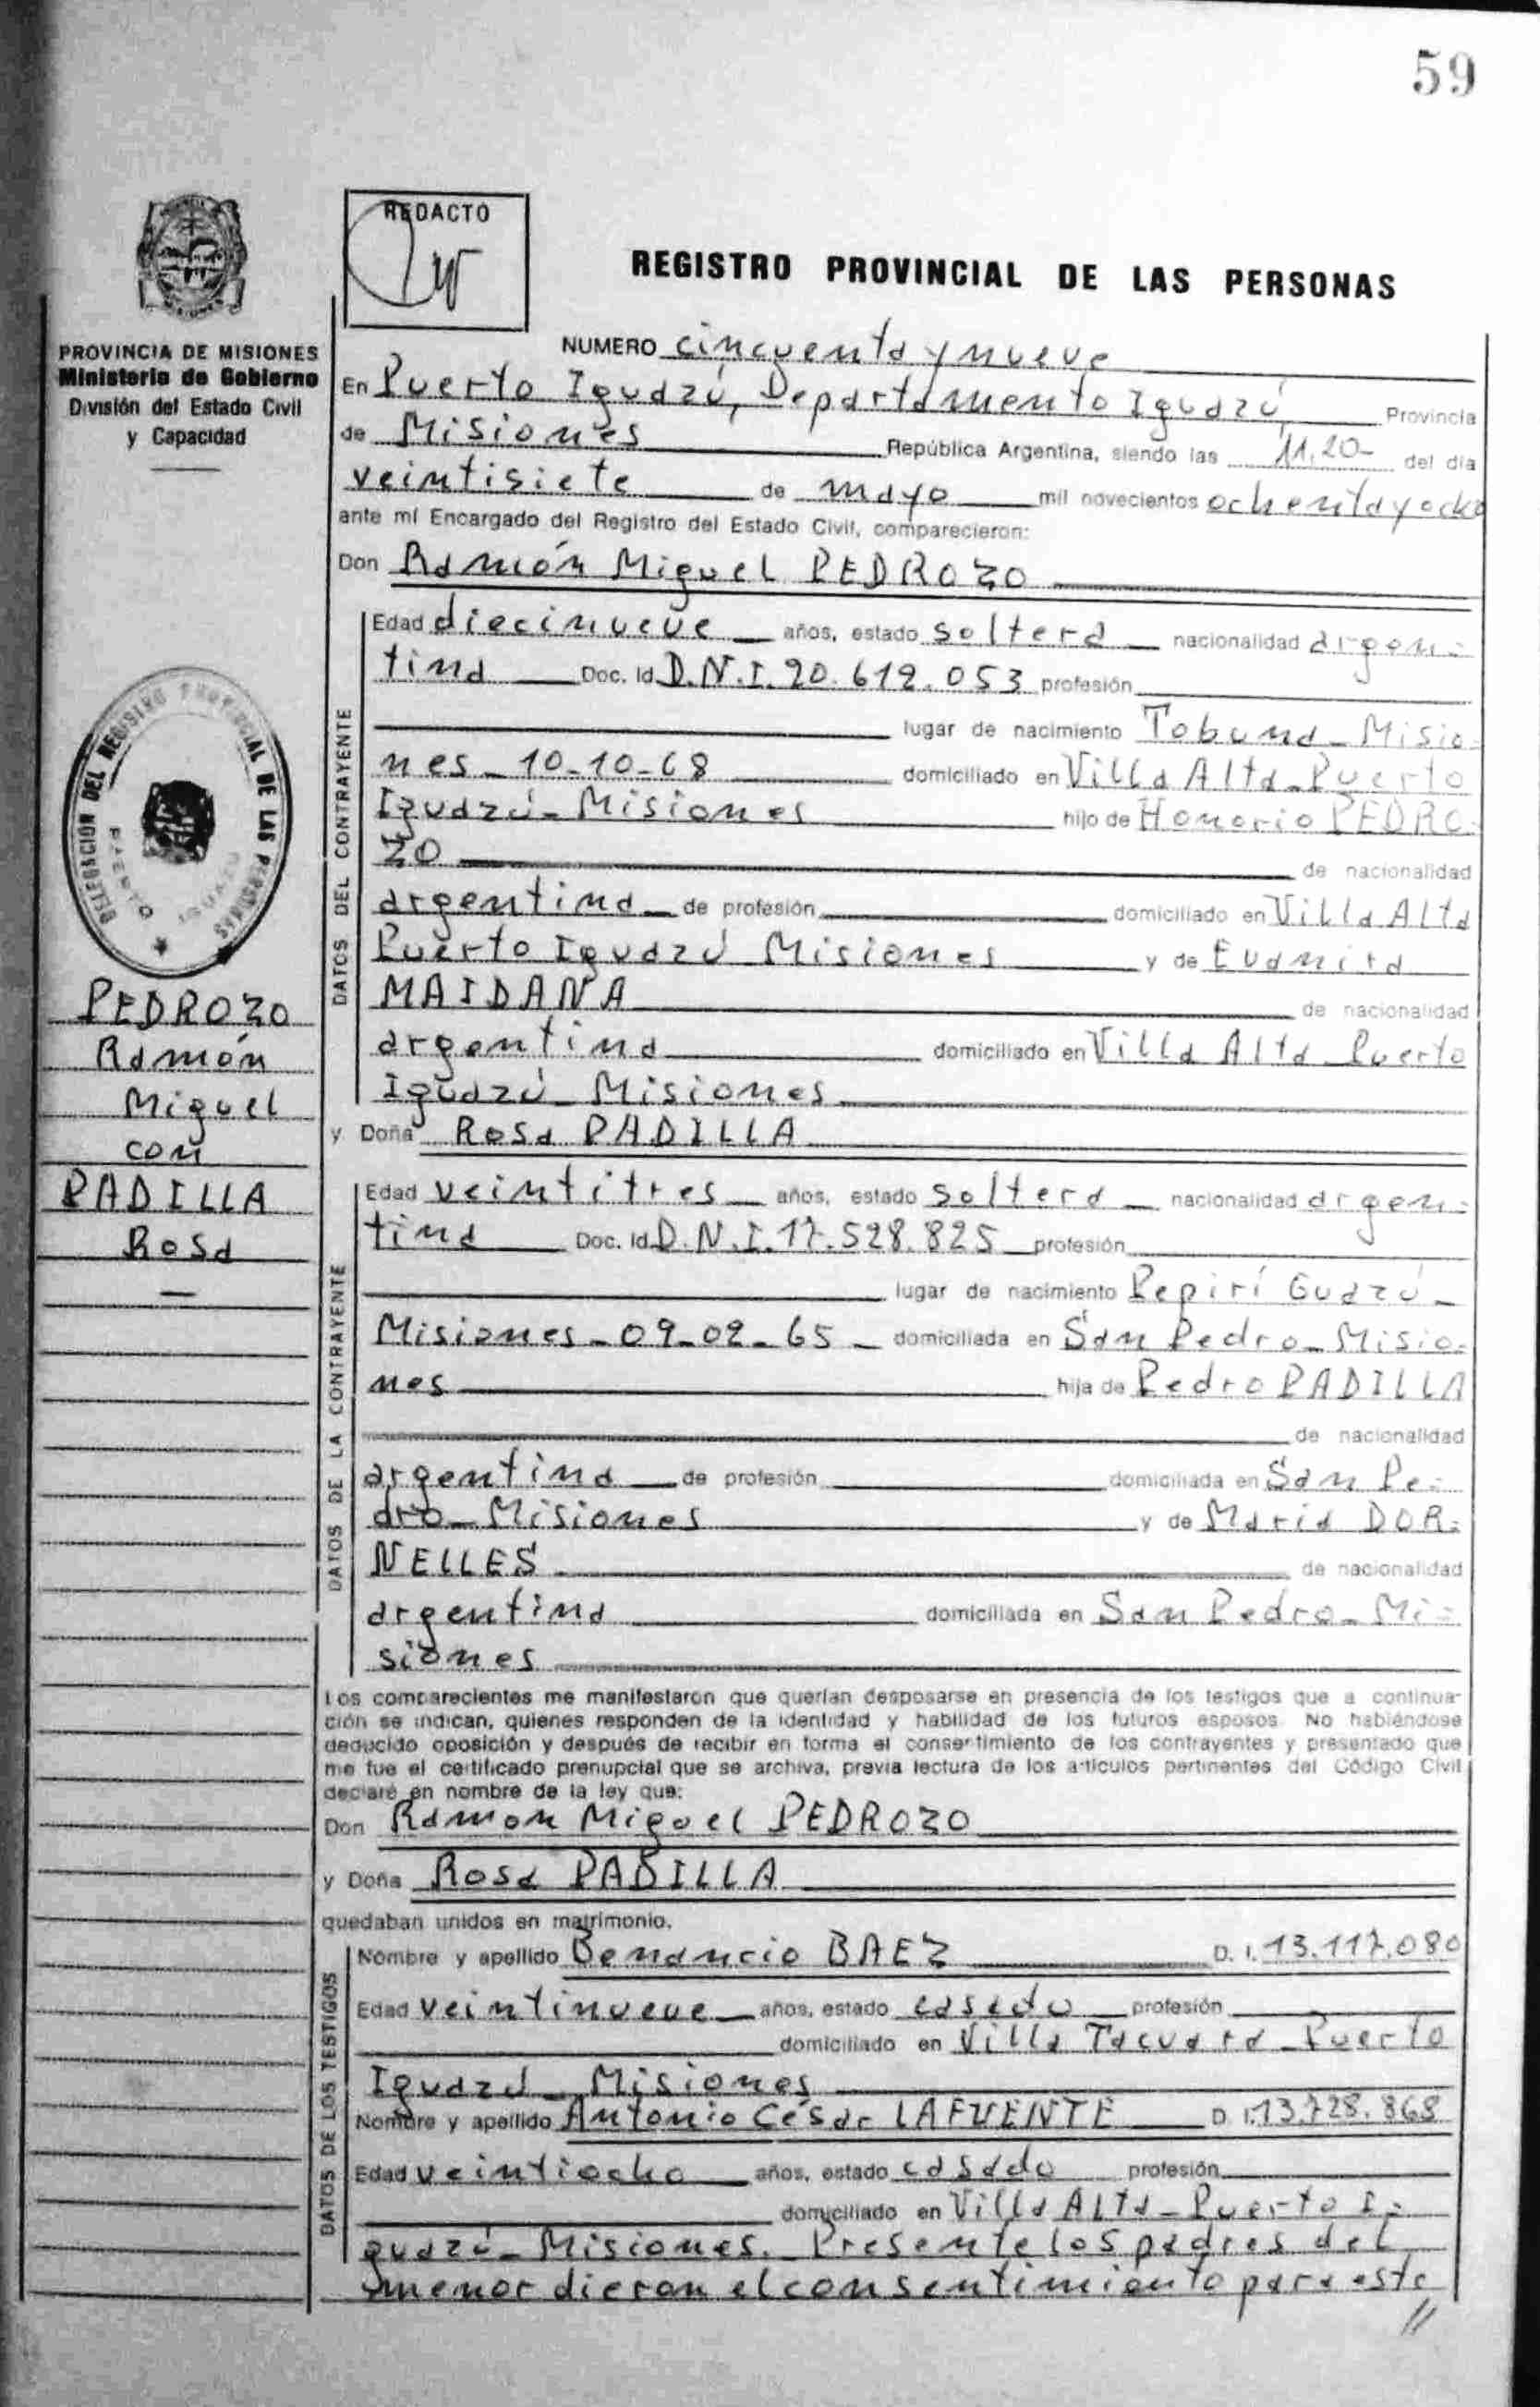 59
REDACTO
REGISTRO PROVINCIAL DE LAS PERSONAS
PROVINCIA DE MISIONES
Ministerio de Gobierno
División del Estado Civil
y Capacidad
NUMERO cincuenta y nueve
En Puerto Iguazú, Departamento Iguazú, Provincia
de Misiones República Argentina, siendo las 11,20- del día
veintisiete de mayo mil novecientos ochenta y ocho
ante mí Encargado del Registro del Estado Civil, comparecieron:
Don Ramón Miguel PEDROZO
DATOS DEL CONTRAYENTE
Edad diecinueve años, estado soltera nacionalidad argen-
tina Doc. Id D.N.I. 20.619.053 profesión
lugar de nacimiento Tobuna - Misio-
nes - 10-10-68 domiciliado en Villa Alta - Puerto
Iguazú - Misiones hijo de Honorio PEDRO-
ZO de nacionalidad
argentina de profesión domiciliado en Villa Alta
Puerto Iguazú Misiones y de
MAIDANA de nacionalidad
argentina domiciliado en Villa Alta Puerto
Iguazú - Misiones
y Doña Rosa PADILLA
DATOS DE LA CONTRAYENTE
Edad veintitres años, estado soltera nacionalidad argen-
tina Doc. Id D.N.I. 17.528.825 profesión
lugar de nacimiento Pepirí Guazú -
Misiones - 09-02-65 - domiciliada en San Pedro - Misio-
nes hija de Pedro PADILLA
de nacionalidad
argentina de profesión domiciliada en San Pe-
dro - Misiones y de María DOR-
NELLES de nacionalidad
argentina domiciliada en San Pedro - Mi-
siones
Los comparecientes me manifestaron que querían desposarse en presencia de los testigos que a continua-
ción se indican, quienes responden de la identidad y habilidad de los futuros esposos. No habiéndose
deducido oposición y después de recibir en forma el consertimiento de los contrayentes y presentado que
me fue el certificado prenupcial que se archiva, previa lectura de los artículos pertinentes del Código Civil
declaré en nombre de la ley que:
Don Ramon Miguel PEDROZO
y Doña Rosa PADILLA
quedaban unidos en matrimonio.
DATOS DE LOS TESTIGOS
Nombre y apellido Benancio BAEZ D. I. 13.117.080
Edad veintinueve años, estado casado profesión
domiciliado en Villa Tacuara - Puerto
Iguazú - Misiones
Nombre y apellido Antonio César LAFUENTE D. I. 13.728.868
Edad veintiocho años, estado casado profesión
domiciliado en Villa Alta - Puerto I-
guazú - Misiones. Presente los padres del
menor dieron el consentimiento para este
//
DELEGACION DEL REGISTRO PROVINCIAL DE LAS PERSONAS
PUERTO IGUAZU
PEDROZO
Ramón
Miguel
con
PADILLA
Rosa
—